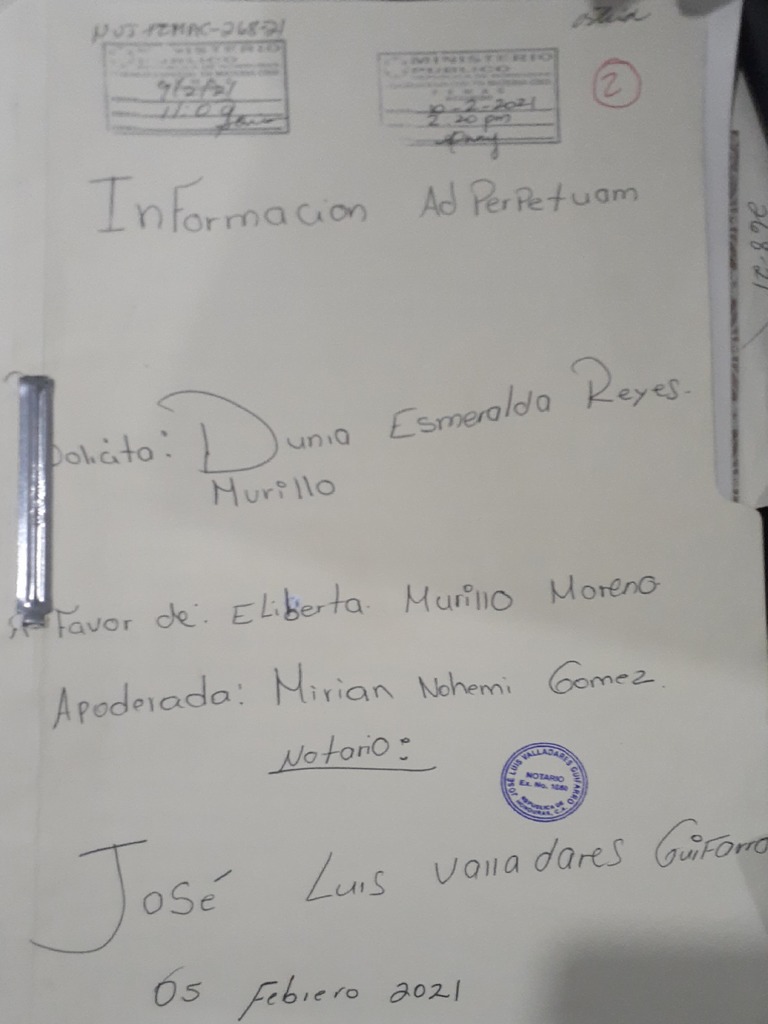 NUI-FEMAC-268-21
MINISTERIO
PUBLICO
9/2/21
11:09
MINISTERIO
PUBLICO
10-2-2021
2:20 pm
2
268-21
Informacion Ad Perpetuam
Solicito: Dunia Esmeralda Reyes.
Murillo
A Favor de: Eliberta Murillo Moreno
Apoderada: Mirian Nohemi Gomez.
Notario:
JOSÉ LUIS VALLADARES GUIFARRO
NOTARIO
Ex. No. 1080
REPUBLICA DE
HONDURAS, C.A.
José Luis Valladares Guifarro
05 Febrero 2021